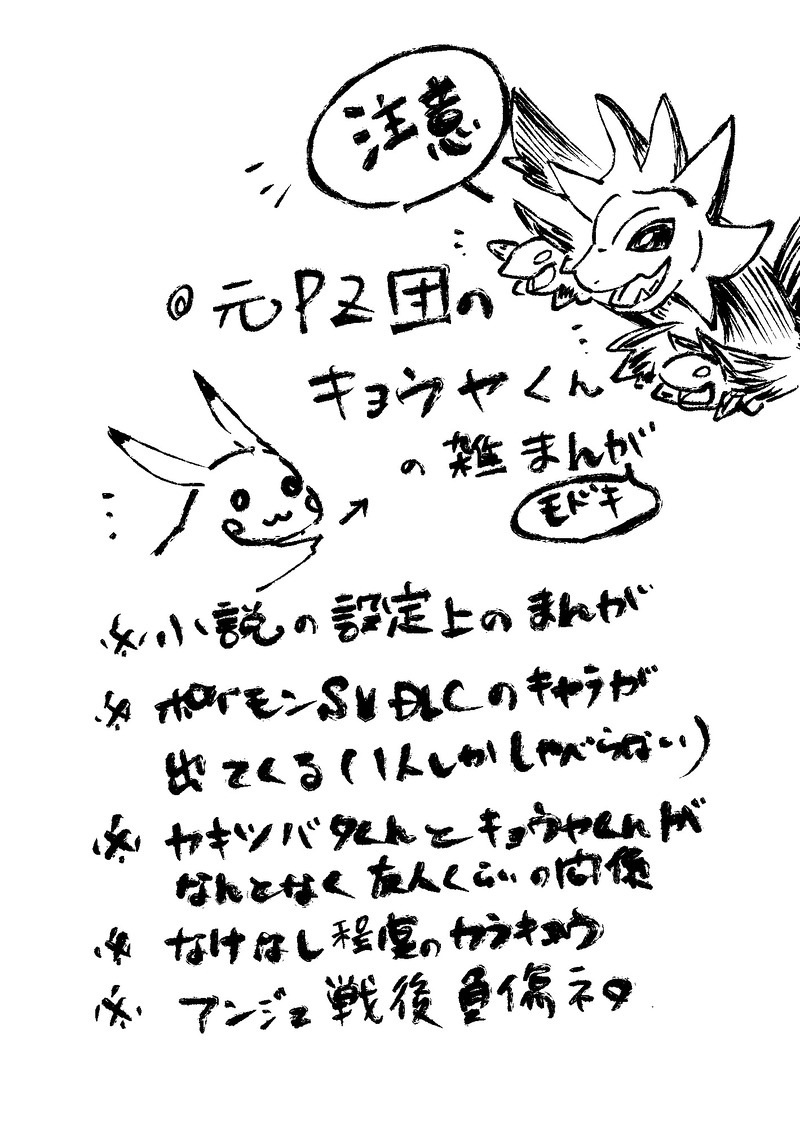 注意
◎元PZ団の
キョウヤくん
の雑まんが
モドキ
※小説の設定上のまんが
※ポケモンSV DLCのキャラが
出てくる(1人しかしゃべらない)
※カキツバタくんとキョウヤくんが
なんとなく友人くらいの関係
※なけなし程度のカラキョウ
※アンジュ戦後負傷ネタ